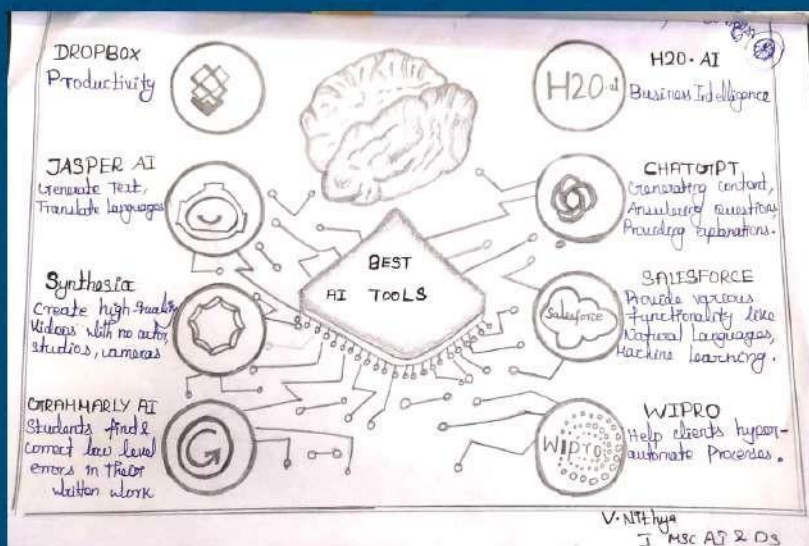 DROPBOX
Productivity
JASPER AI
Generate Text,
Translate Languages
Synthesia
Create high-quality
Videos with no actor,
Studios, cameras
GRAMMARLY AI
Students find &
correct low level
errors in their
written work
BEST
AI TOOLS
H20.ai
H20.AI
Business Intelligence
CHATGPT
Generating content,
Answering questions,
Providing explanations.
Salesforce
SALESFORCE
Provide various
Functionality like
Natural Languages,
Machine Learning.
WIPRO
WIPRO
Help clients hyper-
automate Processes.
V. Nithya
I MSC AI & DS